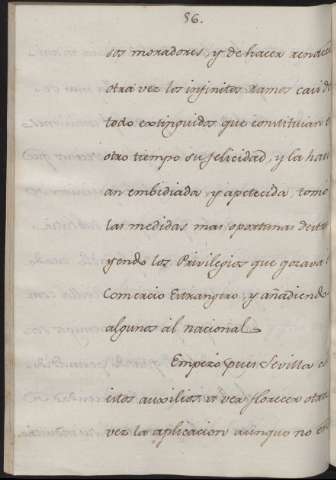 56.
sos moradores, y de hacer renacer
otra vez los infinitos ramos casi de
todo extinguidos que constituian en
otro tiempo su felicidad, y la haci
an embidiada y apetecida, tomo
las medidas mas oportunas destru
yendo los Privilegios que gozava el
Comercio Extrangero y añadiendo
algunos al nacional.
Empezo pues Sevilla
estos auxilios à ver florecer otra
vez la aplicacion aunque no en